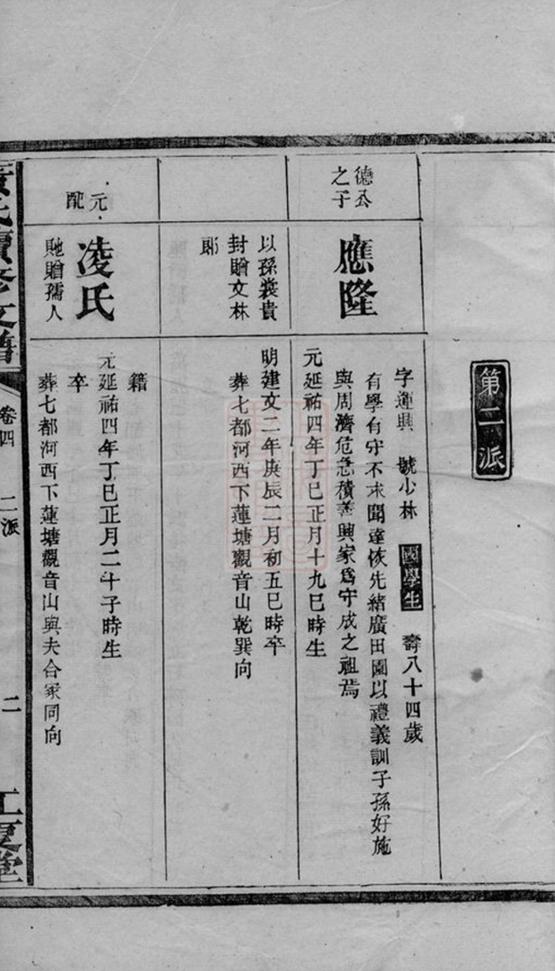 第二派
德公
之子
應隆
字運興 號少林 國學生 壽八十四歲
有學有守不求聞達恢先緒廣田園以禮義訓子孫好施
與周濟危急積善興家爲守成之祖焉
元延祐四年丁巳正月十九巳時生
以孫裳貴
封贈文林
郎
明建文二年庚辰二月初五巳時卒
葬七都河西下蓮塘觀音山乾巽向
元
配
凌氏
貤贈孺人
籍
元延祐四年丁巳正月二十子時生
卒
葬七都河西下蓮塘觀音山與夫合冢同向
黃氏續修支譜
卷四
二派
二
江夏堂